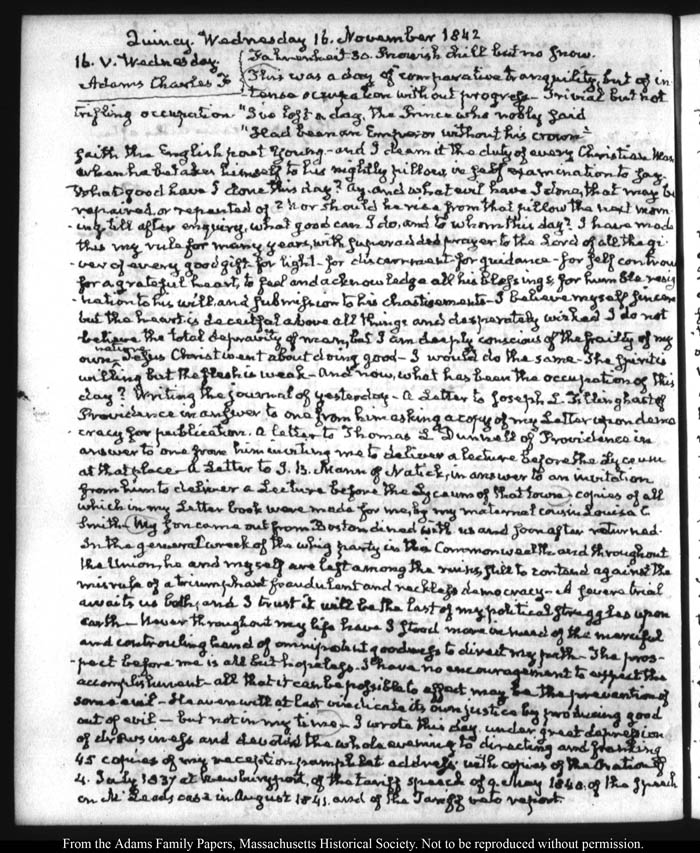 Quincy. Wednesday 16. November 1842
16. V. Wednesday. Fahrenheit 30. Snowish chill but no snow.
Adams Charles F. This was a day of comparative tranquility, but of in-
tense occupation without progress. Trivial but not
trifling occupation "I've lost a day, the Prince who nobly said
"Had been an Emperor without his crown"
saith the English poet Young - and I deem it the duty of every Christian Man
when he betakes himself to his nightly pillow in self examination to say.
What good have I done this day? ay and what evil have I done, that may be
repaired, or repented of? Nor should he rise from that pillow the next morn-
-ing, till after enquiry, what good can I do, and to whom this day? I have made
this my rule for many years, with superadded prayer to the Lord of all the gi-
-ver of every good gift for light - for discernment for guidance - for self controul
for a grateful heart, to feel and acknowledge all his blessings, for humble resig-
-nation to his will, and submission to his chastisements - I believe myself sincere
but the heart is deceitful above all things and desperately wicked I do not
believe the total depravity of man, but I am deeply conscious of the frailty of my
own nature Jesus Christ went about doing good - I would do the same - The spirit is
willing but the flesh is weak - and now, what has been the occupation of this
day? Writing the journal of yesterday - A Letter to Joseph L. Tillinghast of
Providence in answer to one from him asking a copy of my Letter upon demo-
-cracy for publication. A letter to Thomas L Dunnell of Providence in
answer to one from him inviting me to deliver a lecture before the Lyceum
at that place. A Letter to J. B. Mann of Natick, in answer to an invitation
from him to deliver a Lecture before the Lyceum of that town - copies of all
which in my Letter book were made for me, by my maternal cousin Louisa C.
Smith. My Son came out from Boston dined with us and soon after returned.
In the general wreck of the whig party in the Commonwealth and throughout
the Union, he and myself are left among the ruins, still to contend against the
misrule of a triumphant fraudulent and reckless democracy - A severe trial
awaits us both, and I trust it will be the last of my political struggles upon
earth - Never throughout my life have I stood more in need of the merciful
and controuling hand of omnipotent goodness to direct my path - The pros-
-pect before me is all but hopeless. I have no encouragement to expect the
accomplishment - all that it can be possible to effect may be the prevention of
some evil - Heaven will at last vindicate its own justice by producing good
out of evil - but not in my time - I wrote this day under great depression
of drowsiness and devoted the whole evening to directing and franking
45 copies of my reception pamphlet address with copies of the Oration of
4. July 1837 at Newburyport, of the tariff speech of 9 May 1840. of the speech
on McLeods case in August 1841. and of the Tariff veto report.
From the Adams Family Papers, Massachusetts Historical Society. Not to be reproduced without permission.